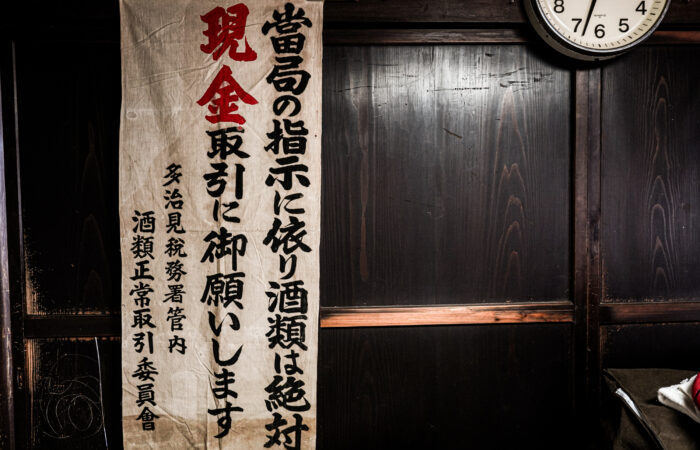 當局の指示に依り酒類は絶対
現金取引に御願いします
多治見税務署管内
酒類正常取引委員會
8 7 6 5 4